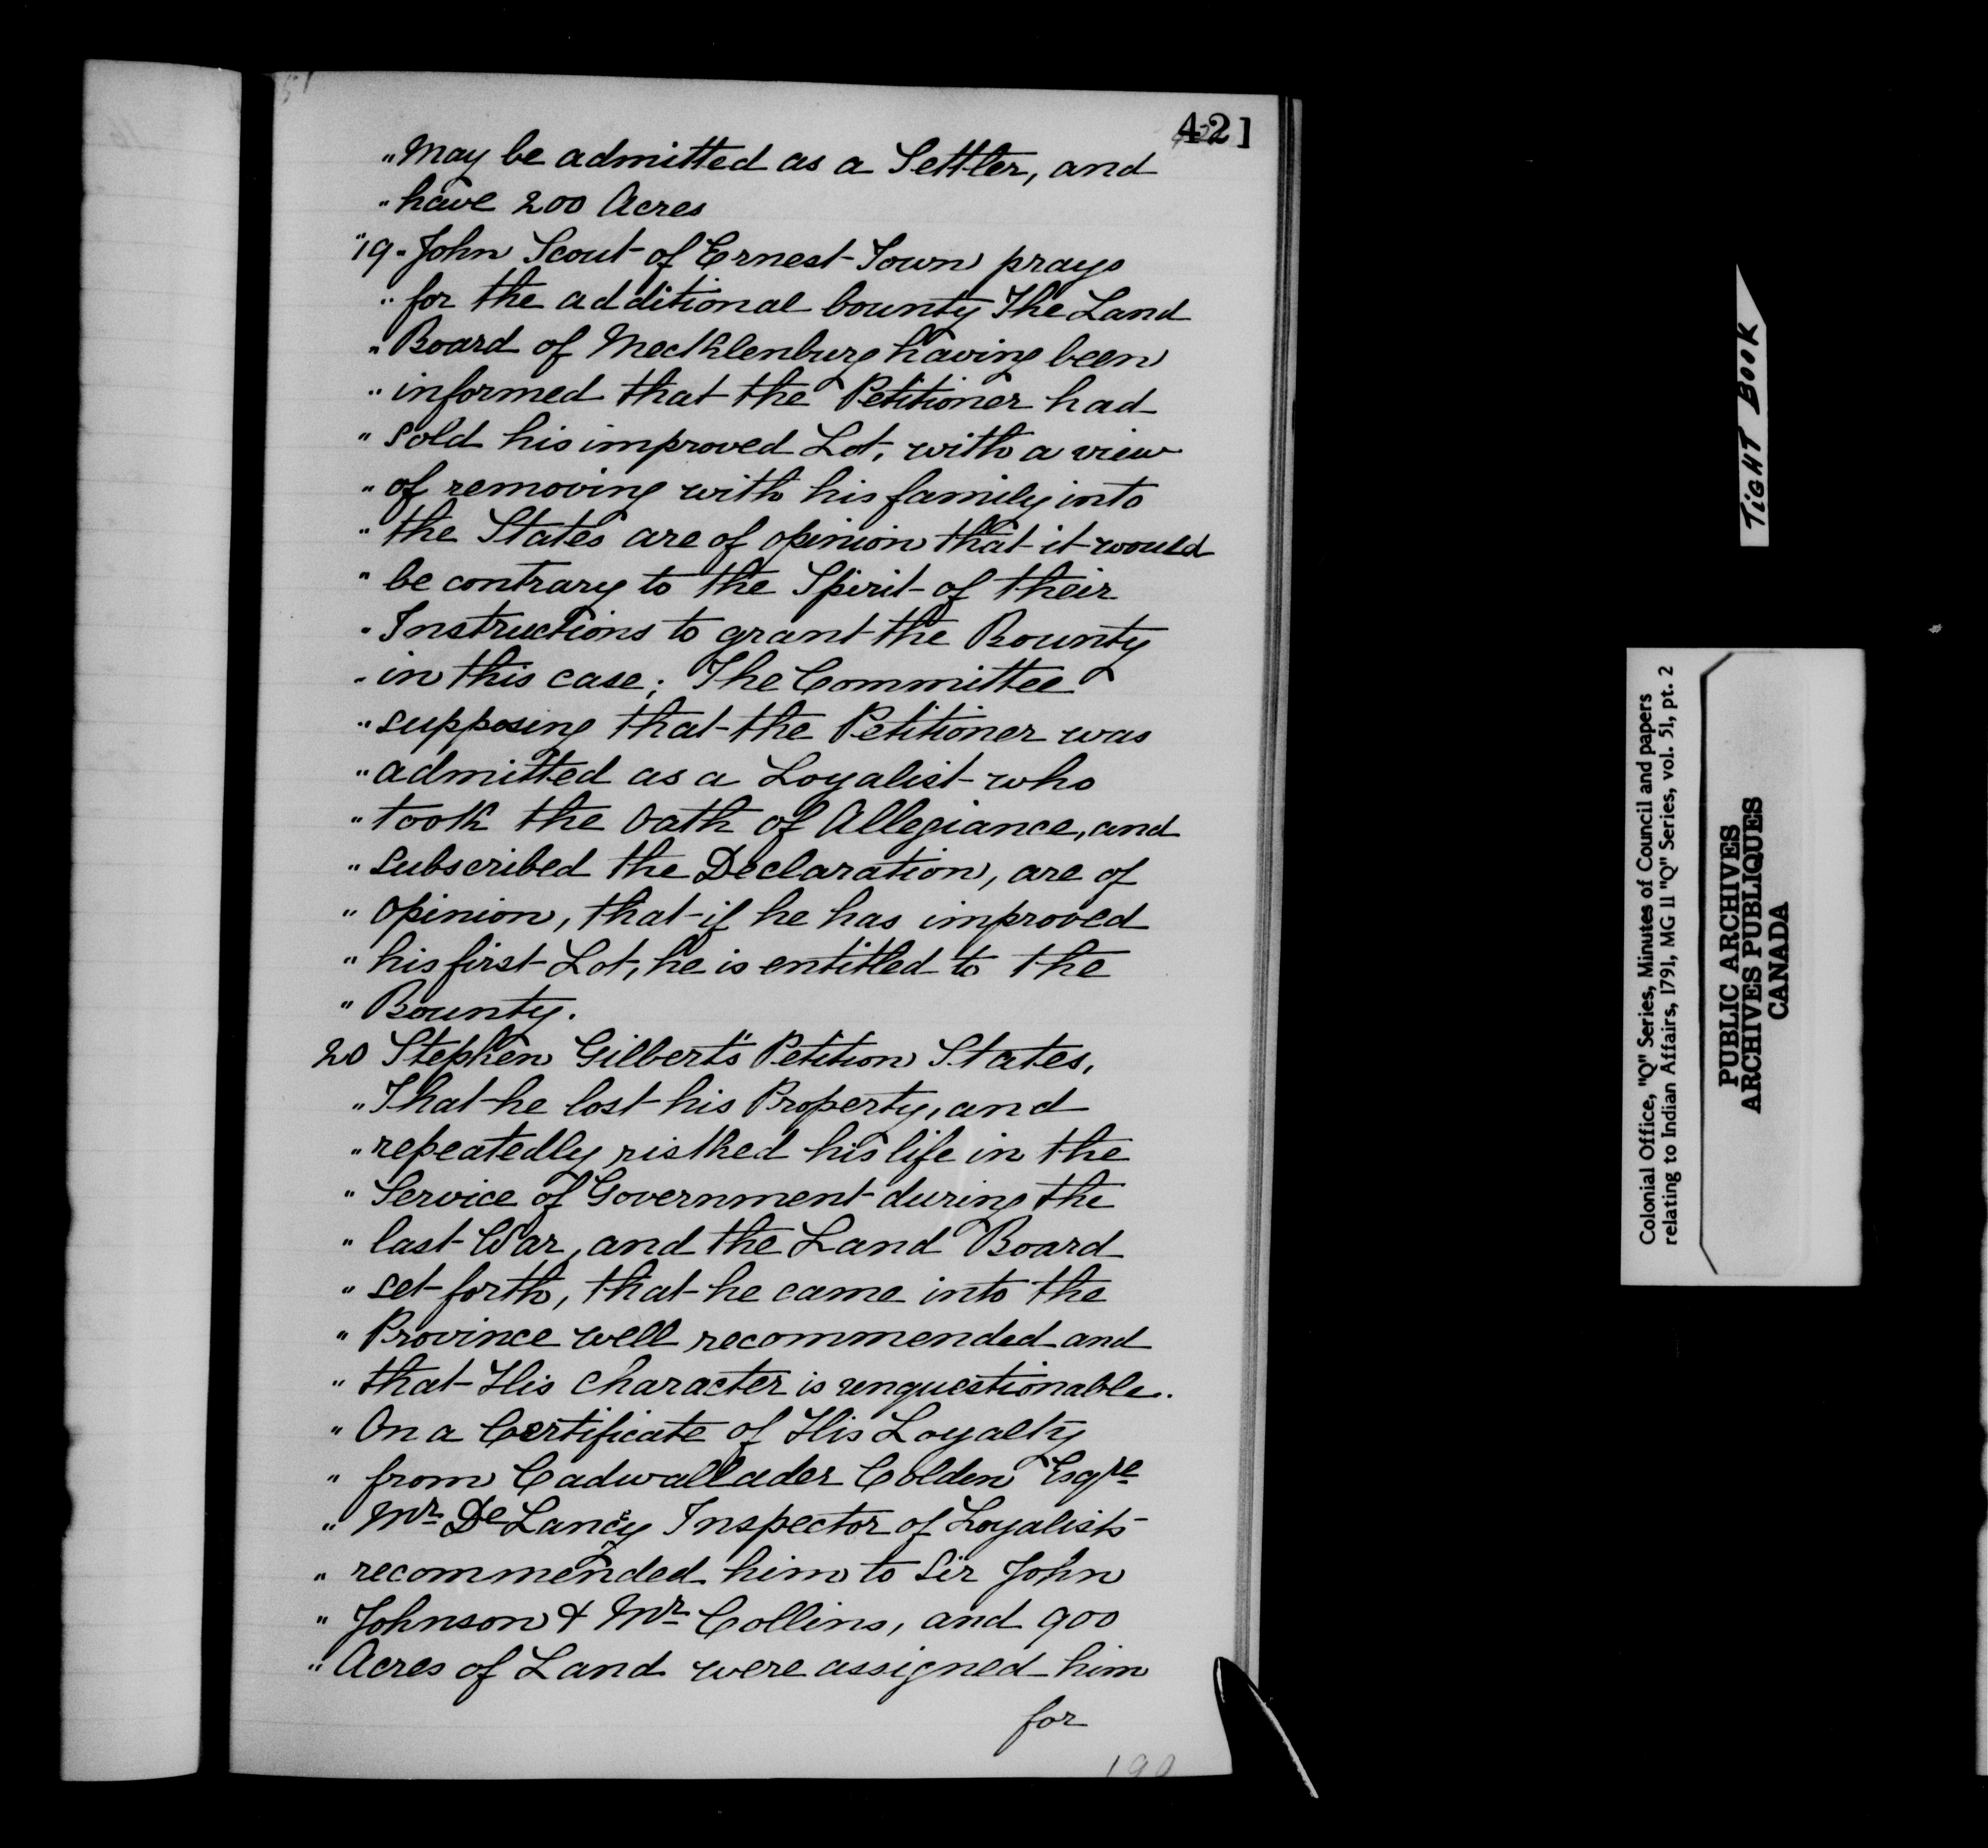 421
" May be admitted as a Settler, and
" have 200 Acres
"19 " John Scout of Ernest Town prays
" for the additional bounty The Land
" Board of Mecklenburg having been
" informed that the Petitioner had
" sold his improved Lot, with a view
" of removing with his family into
" the States are of opinion that it would
" be contrary to the Spirit of their
" Instructions to grant the Bounty
" in this case; The Committee
" supposing that the Petitioner was
" admitted as a Loyalist who
" took the Oath of Allegiance, and
" subscribed the Declaration, are of
" opinion, that if he has improved
" his first Lot, he is entitled to the
" Bounty.
20 Stephen Gilbert's Petition States,
" That he lost his Property, and
" repeatedly risked his life in the
" Service of Government during the
" last War, and the Land Board
" set forth, that he came into the
" Province well recommended and
" that His Character is unquestionable.
" On a Certificate of His Loyalty
" from Cadwallader Colden Esqre
" Mr De Lancey Inspector of Loyalists
" recommended him to Sir John
" Johnson & Mr Collins, and 900
" Acres of Land were assigned him
for
190
TIGHT BOOK
Colonial Office, "Q" Series, Minutes of Council and papers
relating to Indian Affairs, 1791, MG 11 "Q" Series, vol. 51, pt. 2
PUBLIC ARCHIVES
ARCHIVES PUBLIQUES
CANADA